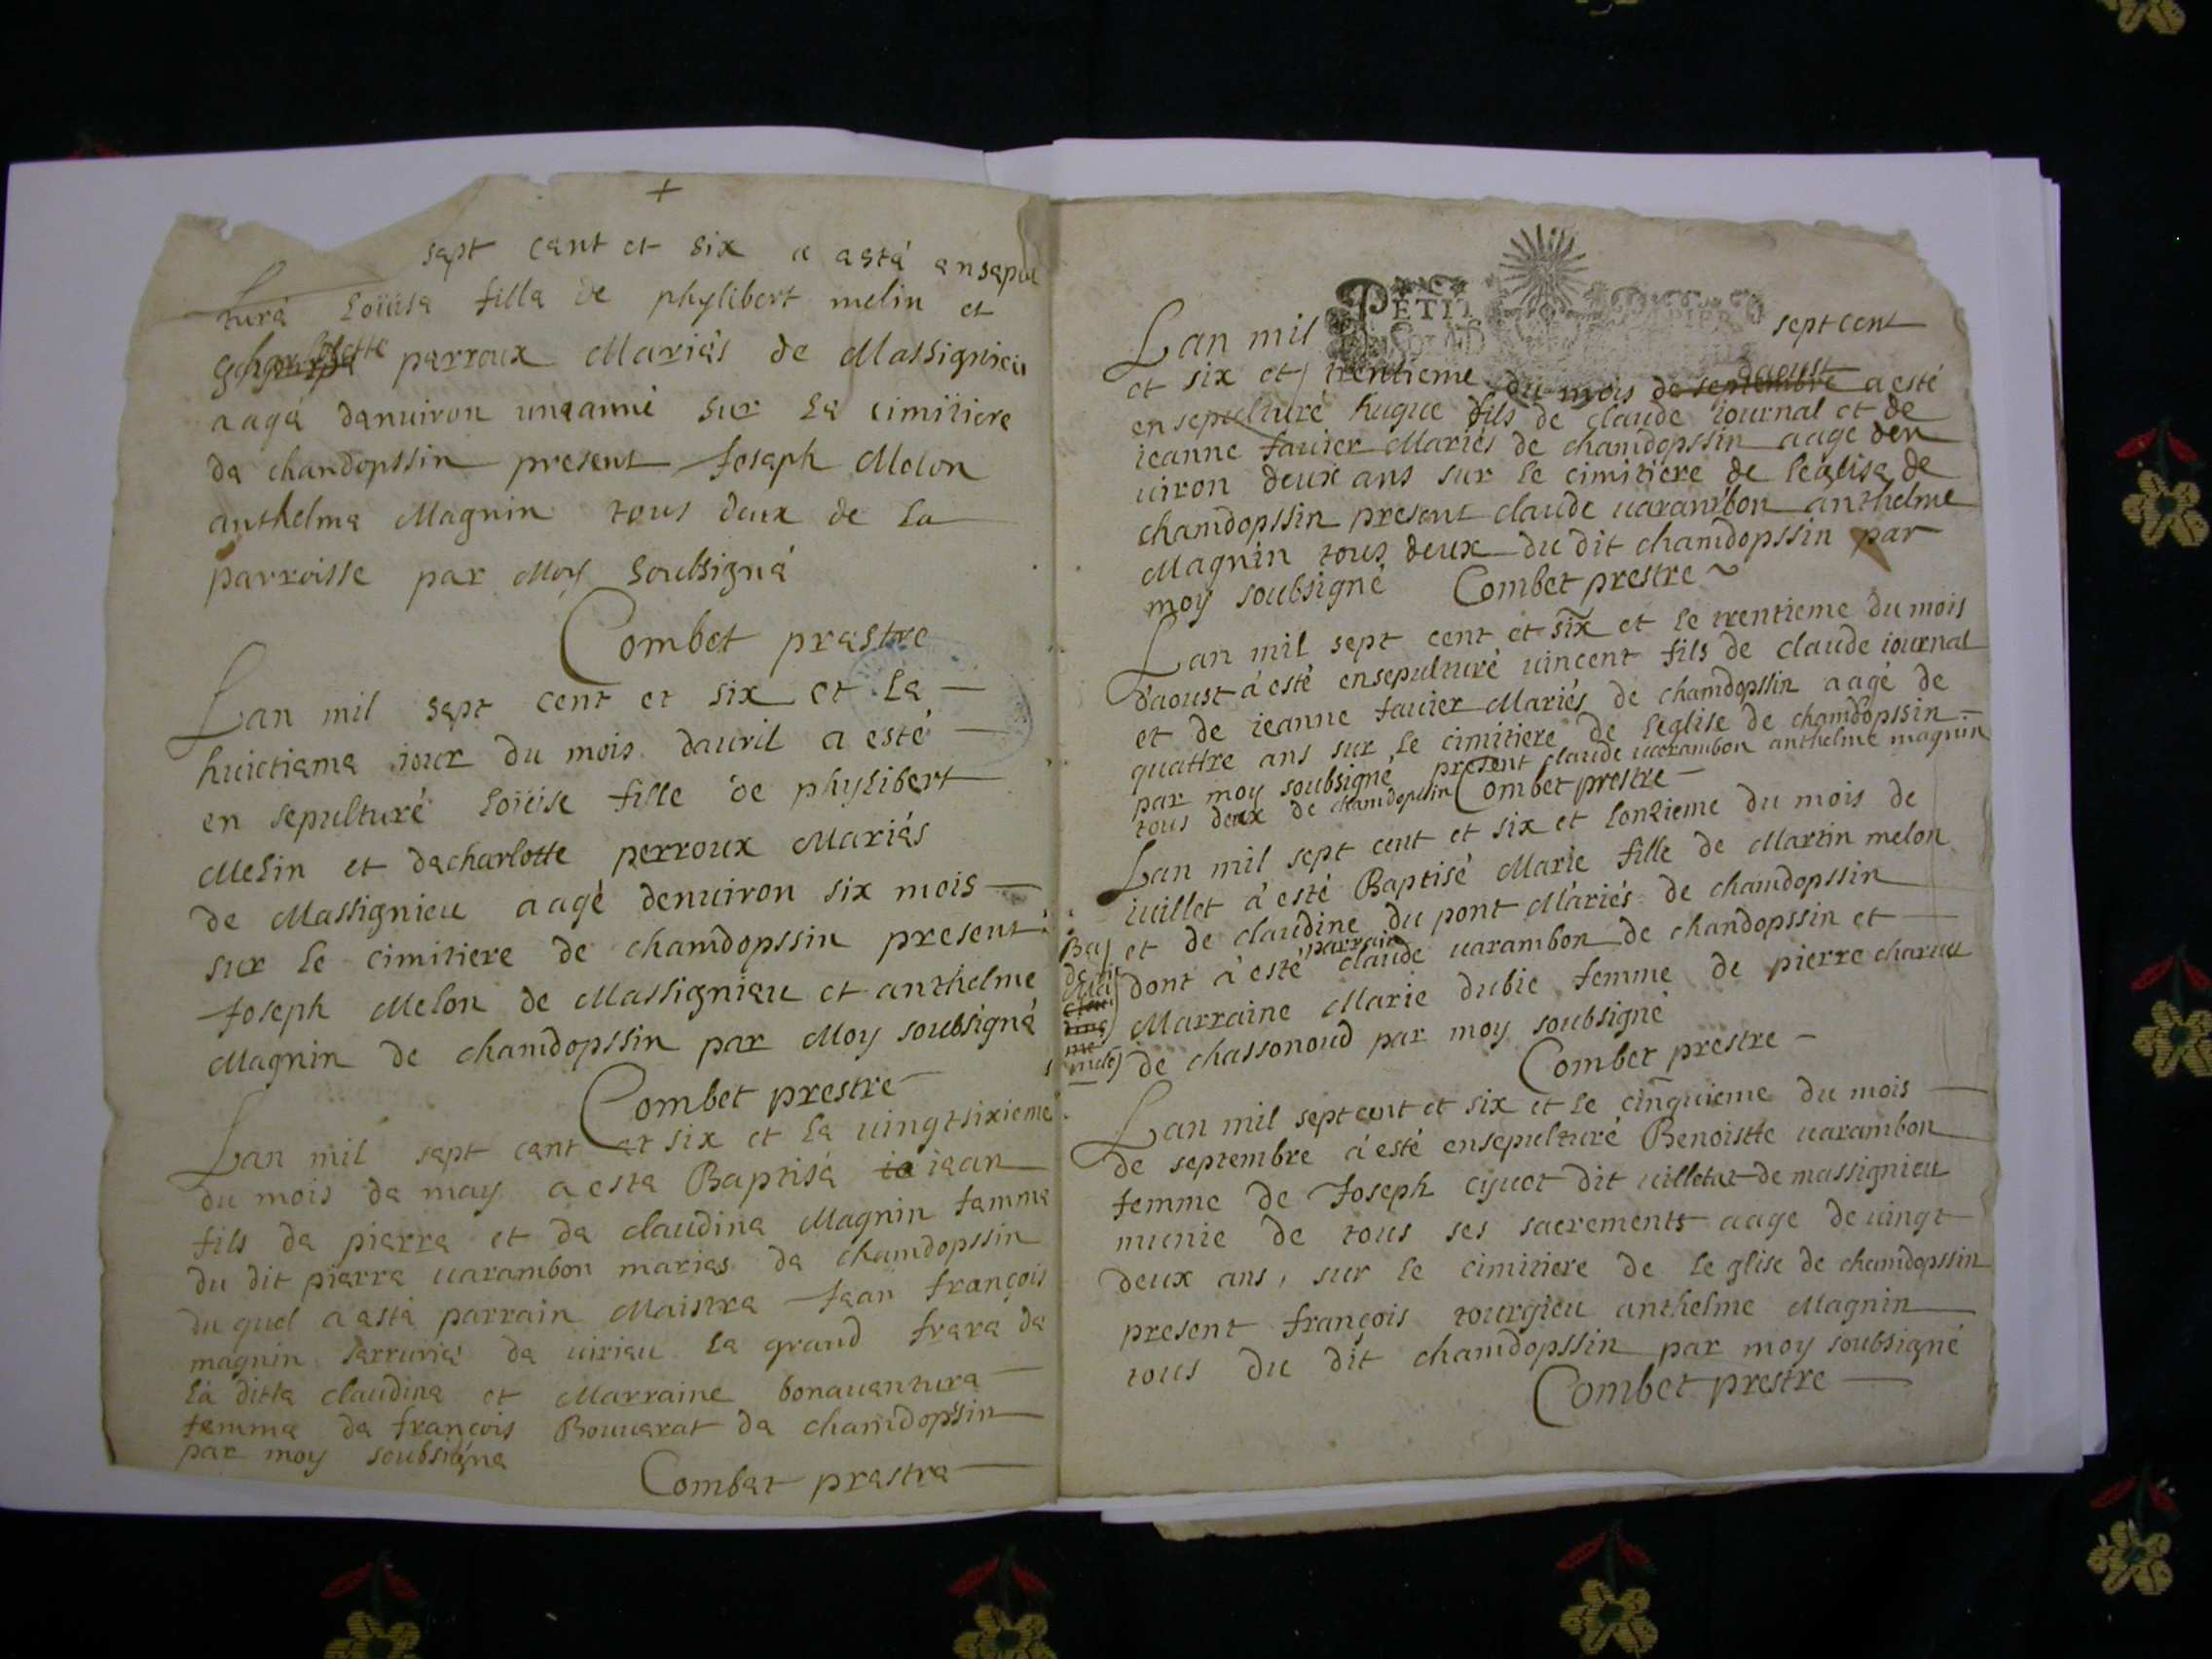 +
sapt cant et six a astá ansapul
turá Loüisa filla de phylibert melin et
parroux Mariás de Massignieu
aagá danuiron uneanné sur La cimitiere
da chandopssin present Joseph Melon
anthelma Magnin tous deux de La
parroisse par Moy Soubsigná
Combet prastre
Lan mil sapt cent et six et La
huictiama iour du mois dauril a esté
en sepulturé Loüise fille de phylibert
Melin et dacharlotte perroux Mariás
de Massignieu aagé denuiron six mois
sur Le cimitiere de chamdopssin present
Joseph Melon de Massigniau et anthelme
Magnin de chamdopssin par Moy soubsigná
Combet prestre
Lan mil sapt cant et six et La uingtsixieme
du mois da may a esta Baptisá ia iaan
fils da piarra et da claudina Magnin famma
du dit piarra uarambon marias da chamdopssin
du qual a astá parrain Maistra Jaan françois
magnin sarruriá da uiriau La grand frara da
La ditta claudina et Marraine bonauantura
famma da françois Bouuarat da chamdopssin
par moy soubsigna
Combat prastra
PETIT PAPIER
Lan mil septcent
et six et trentieme du mois de septembre daoust a esté
ensepulturé hugue fils de claude iournal et de
ieanne fauier Mariés de chamdopssin aagé den
uiron deux ans sur Le cimitiere de leglisa de
chamdopssin present claude uarambon anthelme
Magnin tous deux du dit chamdopssin par
moy soubsigné Combet prestre
Lan mil sept cent et six et Le trentieme du mois
daoust á esté ensepulturé uincent fils de claude iournal
et de ieanne fauier Mariés de chamdopssin aagé de
quattre ans sur Le cimitiere de Leglise de chamdopssin
par moy soubsigné present claude uarambon anthelme magnin
tous deux de chamdopssin Combet prestre
Lan mil sept cent et six et Lonzieme du mois de
iuillet á esté Baptisé Marie fille de Martin melon
et de claudine du pont Máriés de chamdopssin
dont á esté parrain claude uarambon de chandopssin et
Marraine Marie dubie femme de pierre charuet
de chassonoud par moy soubsigné
Combet prestre
Lan mil septcent et six et Le cinquieme du mois
de septembre á esté ensepulturé Benoistte uarambon
femme de Joseph cyuet dit uilletat de massignieu
munie de tous ses sacrements aage de uingt
deux ans, sur Le cimitiere de Le glise de chamdopssin
present françois tourgieu anthelme Magnin
tous du dit chamdopssin par moy soubsigné
Combet prestre